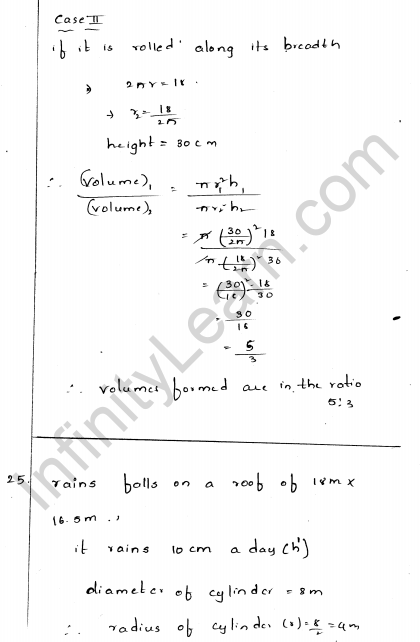 Case II
if it is rolled along its breadth
⇒ 2πr = 18
→ r₂ = 18/2π
height = 30cm
∴ (volume)₁/(volume)₂ = πr₁²h₁/πr₂²h₂
= π(30/2π)² 18 / π(18/2π)² 30
= (30/18)² 18/30
= 30/18
= 5/3
∴ volumes formed are in the ratio
5:3
25. rains falls on a roof of 18m ×
16.5m.,
it rains 10cm a day (h')
diameter of cylinder = 8m
∴ radius of cylinder (r) = 8/2 = 4m
InfinityLearn.com